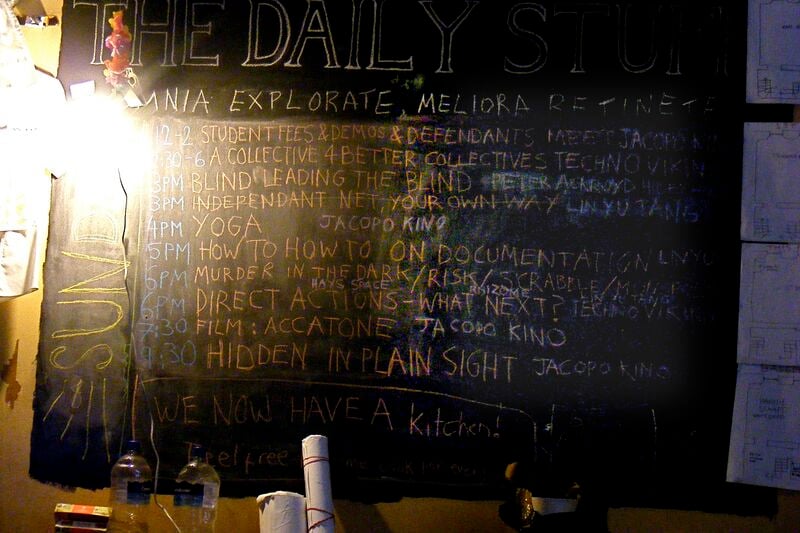 THE DAILY
EXPLORATE, MELIORA RETINETE
12-2 STUDENT FEES & DEMOS & DEFENDANTS MEET JACOPO
:30-6 A COLLECTIVE 4 BETTER COLLECTIVES TECHNO VIKIN
3PM BLIND LEADING THE BLIND PETER ACKROYD
3PM INDEPENDANT NET, YOUR OWN WAY LIN YU TANG
4PM YOGA JACOPO KINO
5PM HOW TO HOW TO ON DOCUMENTATION LN YU
6PM MURDER IN THE DARK/RISK/SCRABBLE/
HAYS SPACE RHIZOME
6PM DIRECT ACTIONS - WHAT NEXT? TECHNO VIK
7:30 FILM: ACCATONE JACOPO KINO
9:30 HIDDEN IN PLAIN SIGHT JACOPO KINO
SUND
WE NOW HAVE A kitchen!
feel free